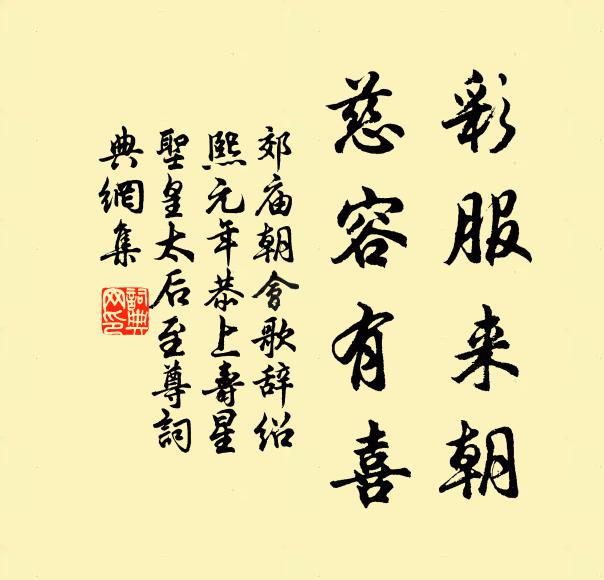 彩服来朝
慈容有喜
郊庙朝會歌辞绍
熙元年恭上壽星
聖皇太后至尊詞
典網集
詞典网印